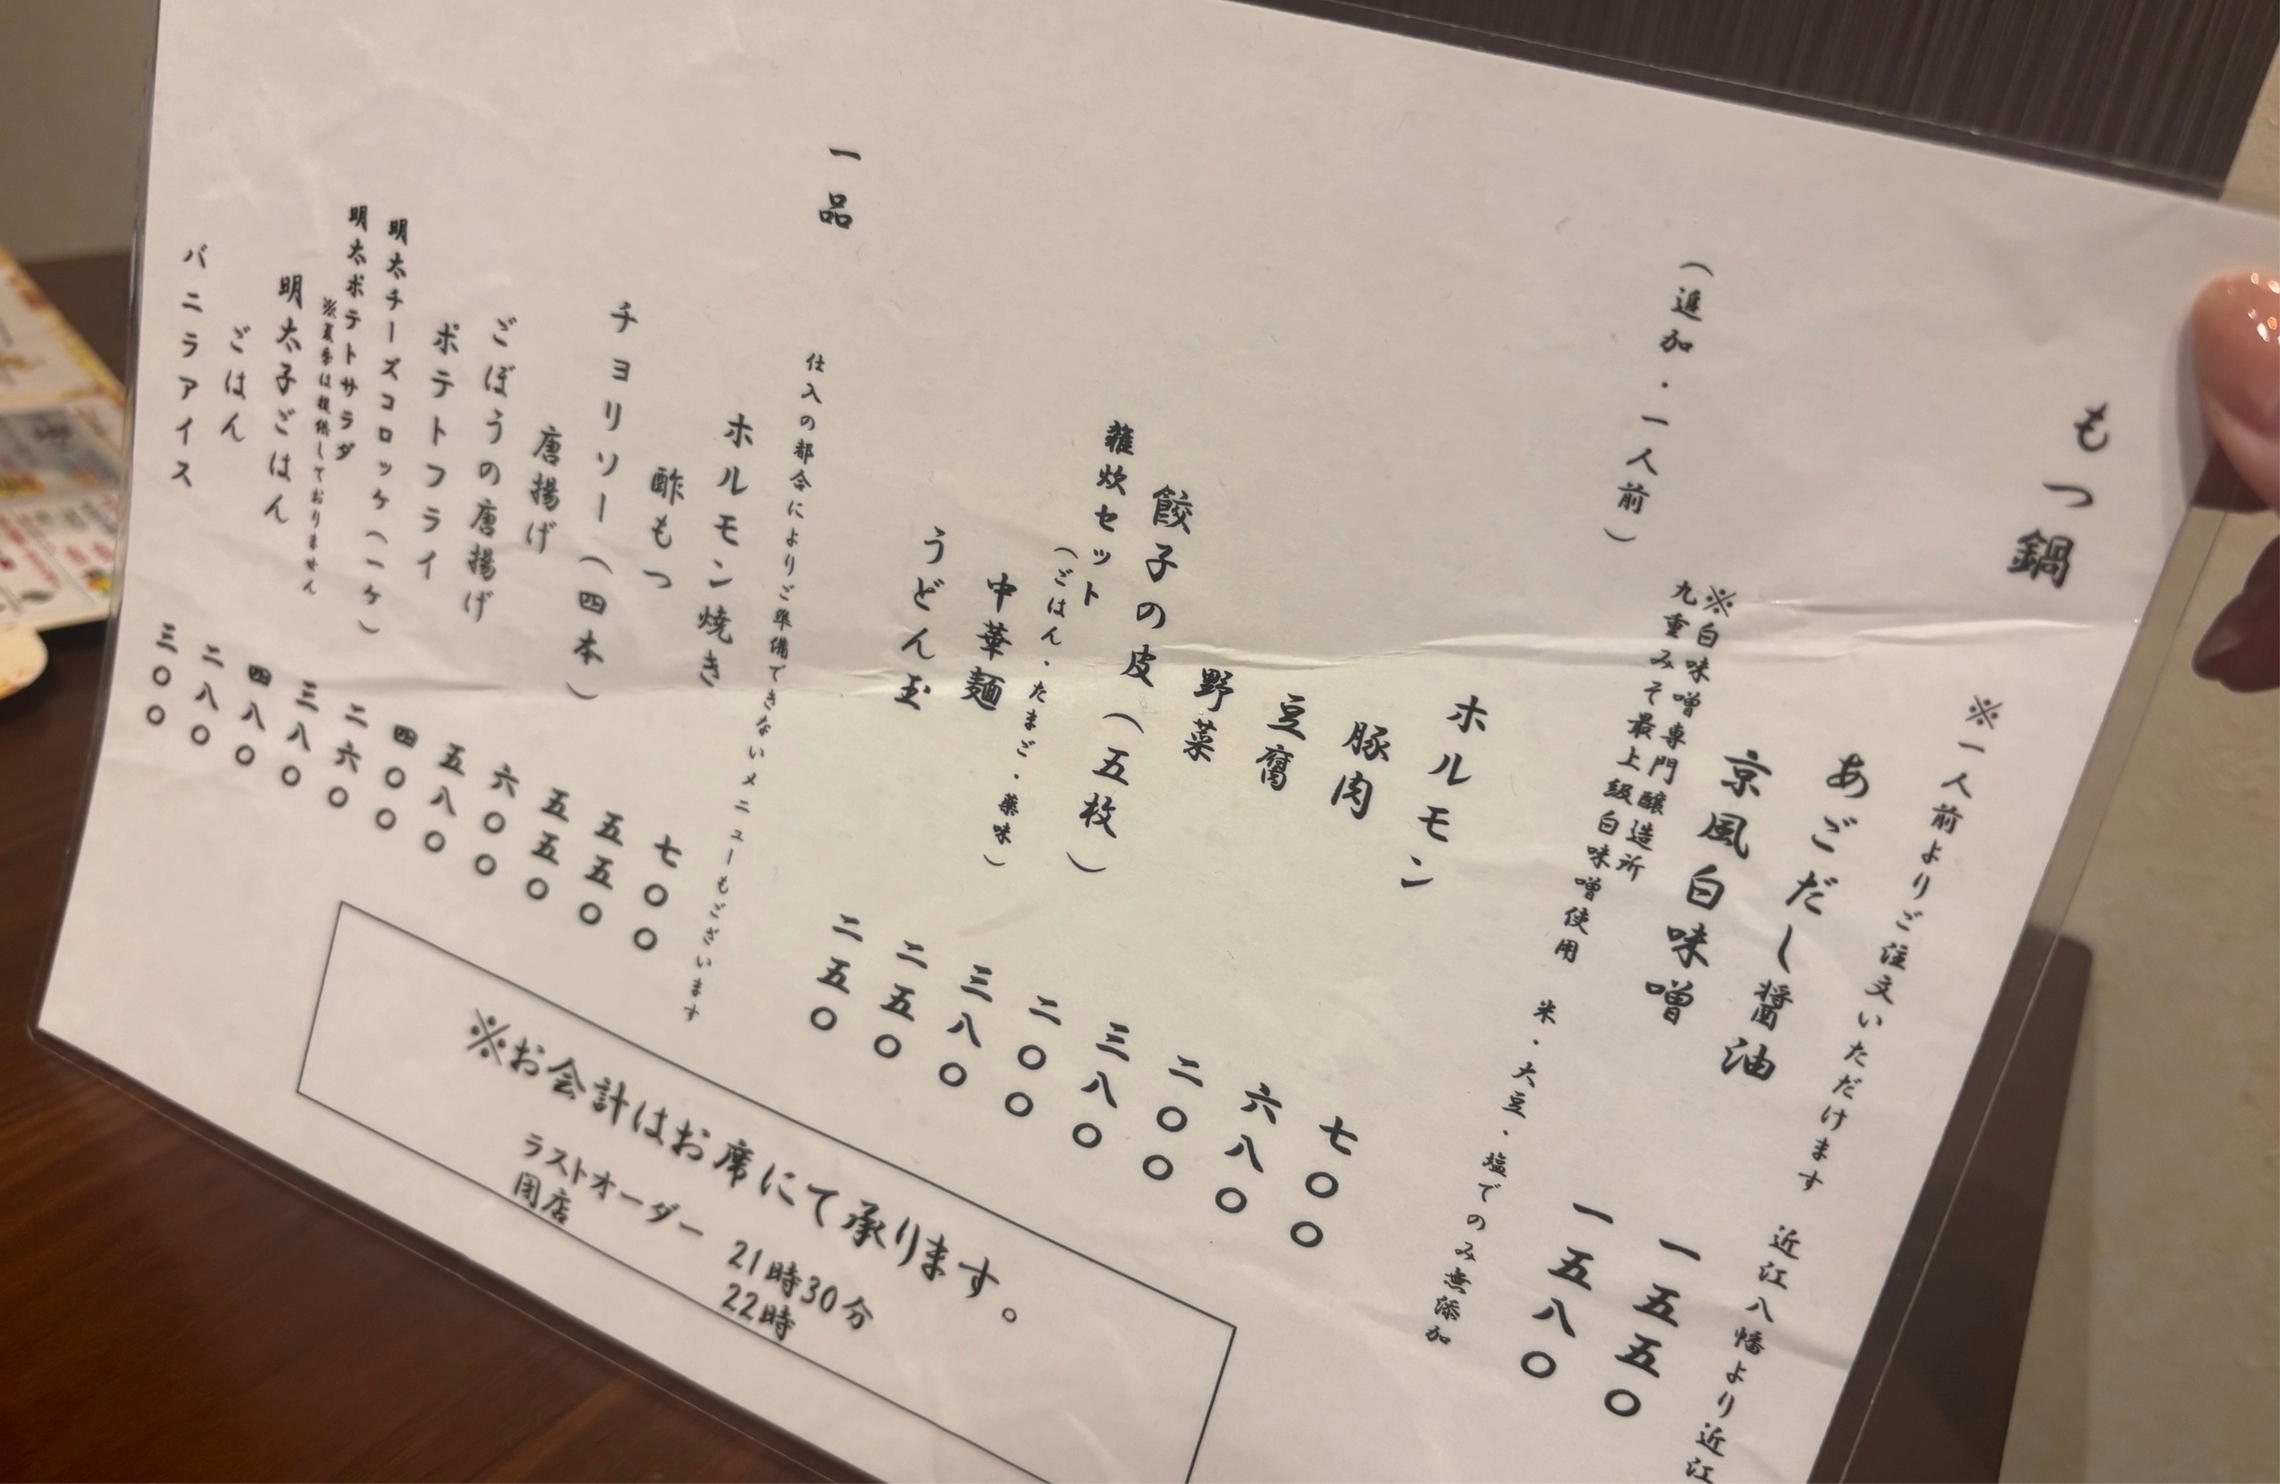 もつ鍋
※一人前よりご注文いただけます　近江八幡より近江
あごだし醤油　一五五〇
京風白味噌　一五八〇
※白味噌専門醸造所
九重みそ最上級白味噌使用　米・大豆・塩でのみ無添加
（追加・一人前）
ホルモン　七〇〇
豚肉　六八〇
豆腐　二〇〇
野菜　三八〇
餃子の皮（五枚）　二〇〇
雑炊セット　三八〇
（ごはん・たまご・薬味）
中華麺　二五〇
うどん玉　二五〇
一品
仕入の都合によりご準備できないメニューもございます
ホルモン焼き　七〇〇
酢もつ　五五〇
チョリソー（四本）　五五〇
唐揚げ　六〇〇
ごぼうの唐揚げ　五八〇
ポテトフライ　四〇〇
明太チーズコロッケ（一ヶ）　二六〇
明太ポテトサラダ　三八〇
※夏季は提供しておりません
明太子ごはん　四八〇
ごはん　二八〇
バニラアイス　三〇〇
※お会計はお席にて承ります。
ラストオーダー　21時30分
閉店　22時